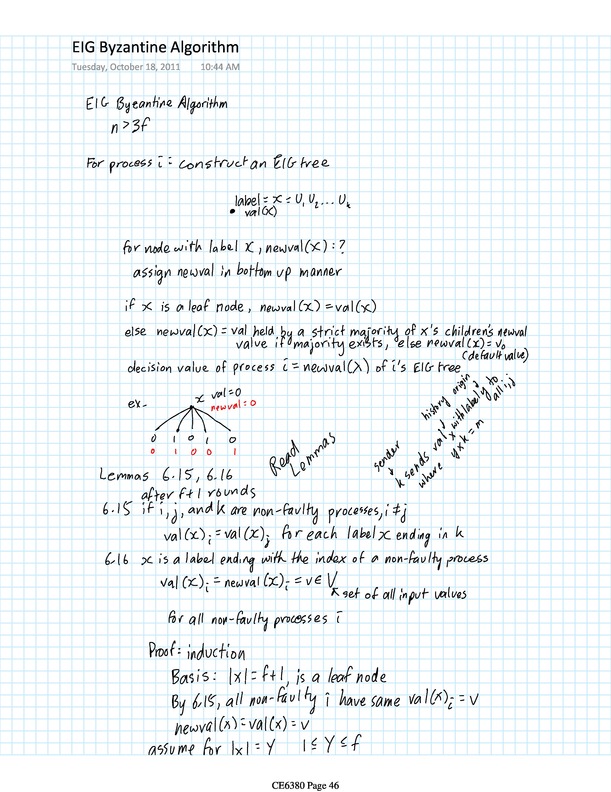 EIG Byzantine Algorithm
Tuesday, October 18, 2011 10:44 AM
EIG Byzantine Algorithm
n > 3f
For process i : construct an EIG tree
label = x = U₁ U₂ ... Uₖ
• val(x)
for node with label x, newval(x) : ?
assign newval in bottom up manner
if x is a leaf node, newval(x) = val(x)
else newval(x) = val held by a strict majority of x's children's newval
value if majority exists, else newval(x) = v₀
(default value)
decision value of process i = newval(λ) of i's EIG tree
ex-
x val = 0
newval = 0
0 1 0 1 0
0 1 0 0 1
Read
Lemmas
history origin
sender
k sends val x with label y to all i, j
where y x k = m
Lemmas 6.15, 6.16
after f+1 rounds
6.15 if i, j, and k are non-faulty processes, i ≠ j
val(x)ᵢ = val(x)ⱼ for each label x ending in k
6.16 x is a label ending with the index of a non-faulty process
val(x)ᵢ = newval(x)ᵢ = v ∈ V
set of all input values
for all non-faulty processes i
Proof: induction
Basis: |x| = f+1, is a leaf node
By 6.15, all non-faulty i have same val(x)ᵢ = v
newval(x) = val(x) = v
assume for |x| = Y 1 ≤ Y ≤ f
CE6380 Page 46